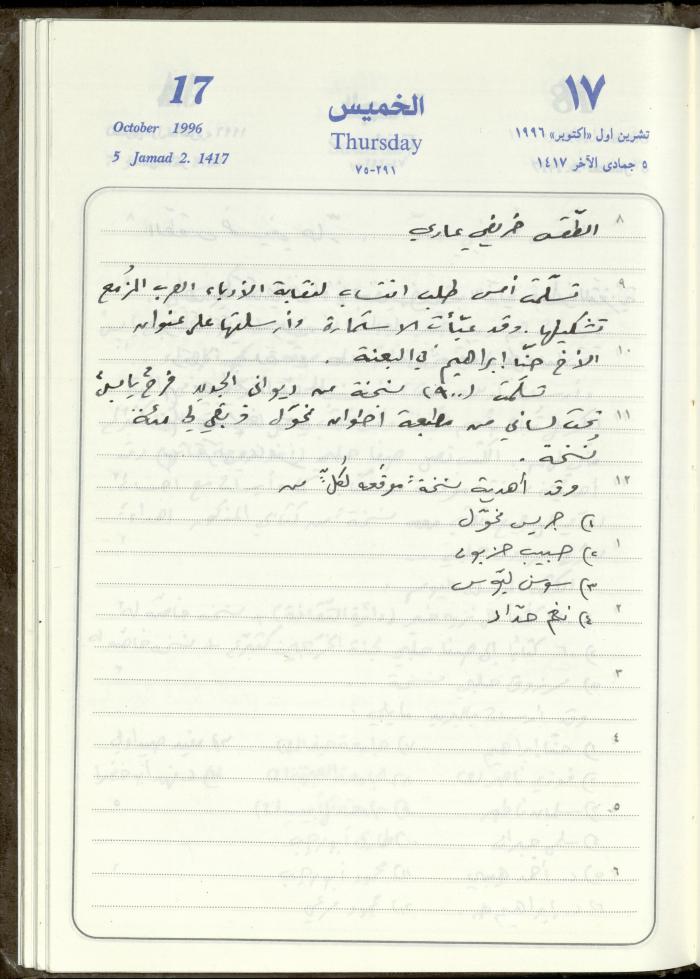 17
October 1996
5 Jamad 2. 1417
الخميس
Thursday
٧٥-٢٩١
١٧
تشرين اول «اكتوبر» ١٩٩٦
٥ جمادى الآخر ١٤١٧
٨ الطقس خريفي عادي
٩ تسلّمت أمس طلب انتساب لنقابة الأدباء العرب المزمع
تشكيلها. وقد عبّأت الاستمارة وأرسلتها على عنوان
١٠ الأخ حنّا إبراهيم في البعنة.
تسلّمت (٩٠٠) نسخة من ديواني الجديد فرح يابس
١١ تحت لساني من مطبعة انطوان مخّول وبقي لي مئة
نُسخة.
١٢ وقد أهديت نسخة موقعه لكلٍّ من
١) جريس مخّول
١ ٢) حبيب حزبون
٣) سوسن ليّوس
٢ ٤) نعم حدّاد
٣
٤
٥
٦